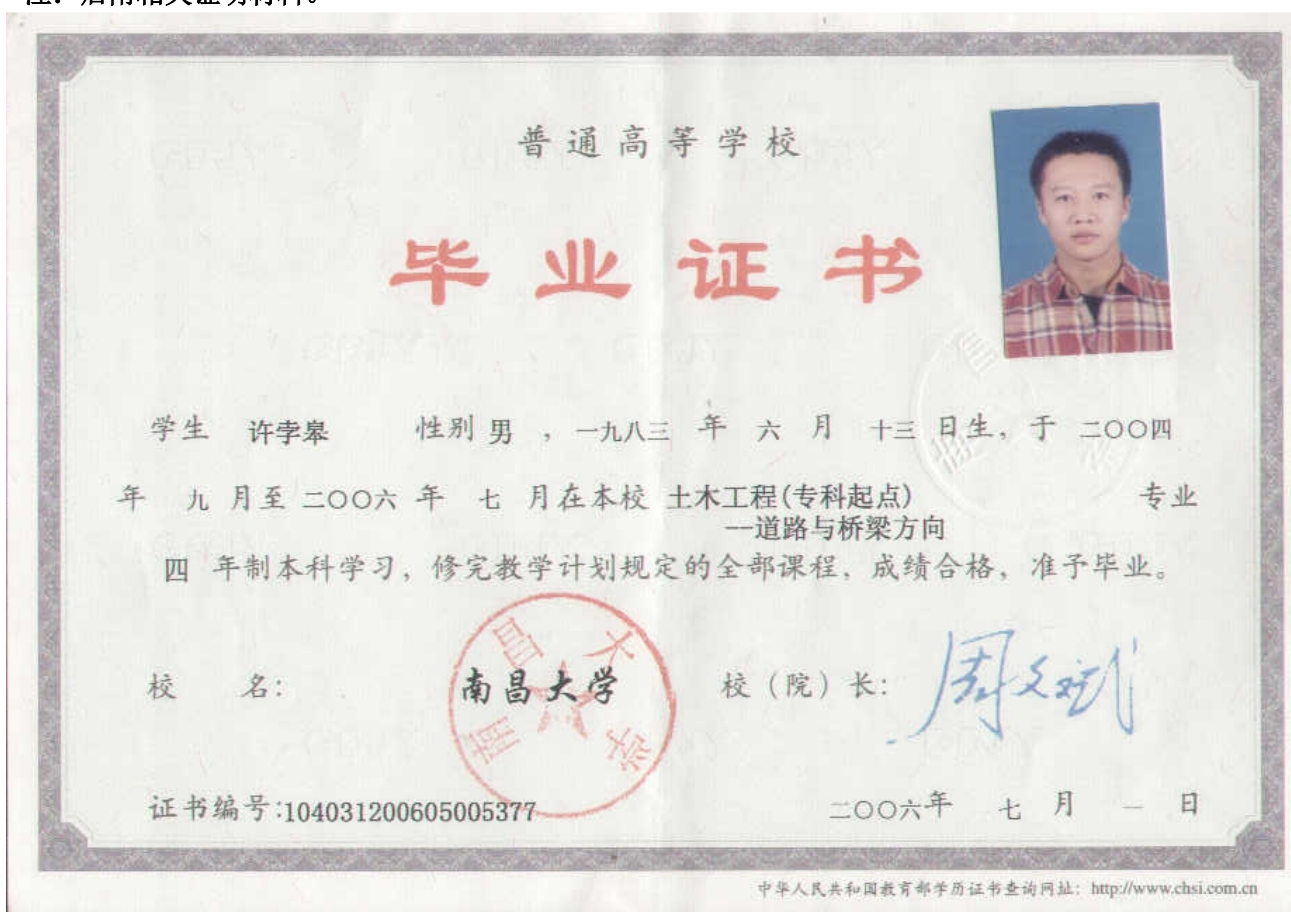 注：后附相关证明材料。
普通高等学校
毕业证书
学生 许孛皋 性别 男 ，一九八三 年 六 月 十三 日生，于 二○○四
年 九 月至 二○○六 年 七 月在本校 土木工程(专科起点) 专业
—道路与桥梁方向
四 年制本科学习，修完教学计划规定的全部课程，成绩合格，准予毕业。
校 名： 南昌大学 校（院）长： 周文斌
南昌大学
证书编号:104031200605005377 二○○六年 七 月 一 日
中华人民共和国教育部学历证书查询网址：http://www.chsi.com.cn